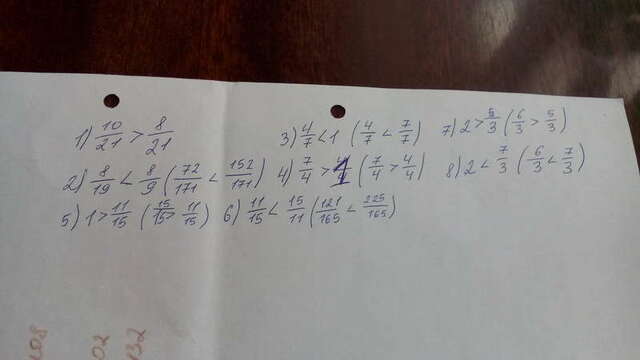 1) 10/21 > 8/21 3) 4/7 < 1 (4/7 < 7/7) 7) 2 > 5/3 (6/3 > 5/3)
2) 8/19 < 8/9 (72/171 < 152/171) 4) 7/4 > 1 (7/4 > 4/4) 8) 2 < 7/3 (6/3 < 7/3)
5) 1 > 11/15 (15/15 > 11/15) 6) 11/15 < 15/11 (121/165 < 225/165)